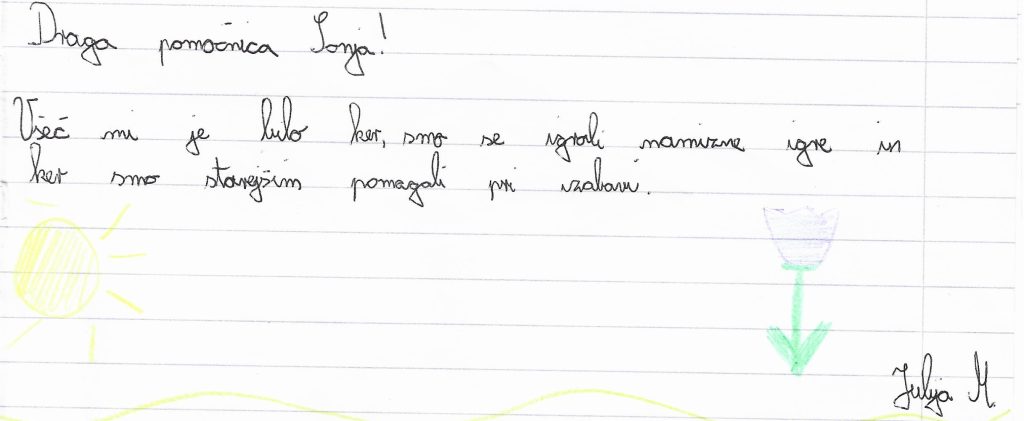 Draga pomočnica Sonja!
Všeč mi je bilo ker, smo se igrali namizne igre in
ker smo starejšim pomagali pri zabavi.
Julija M.